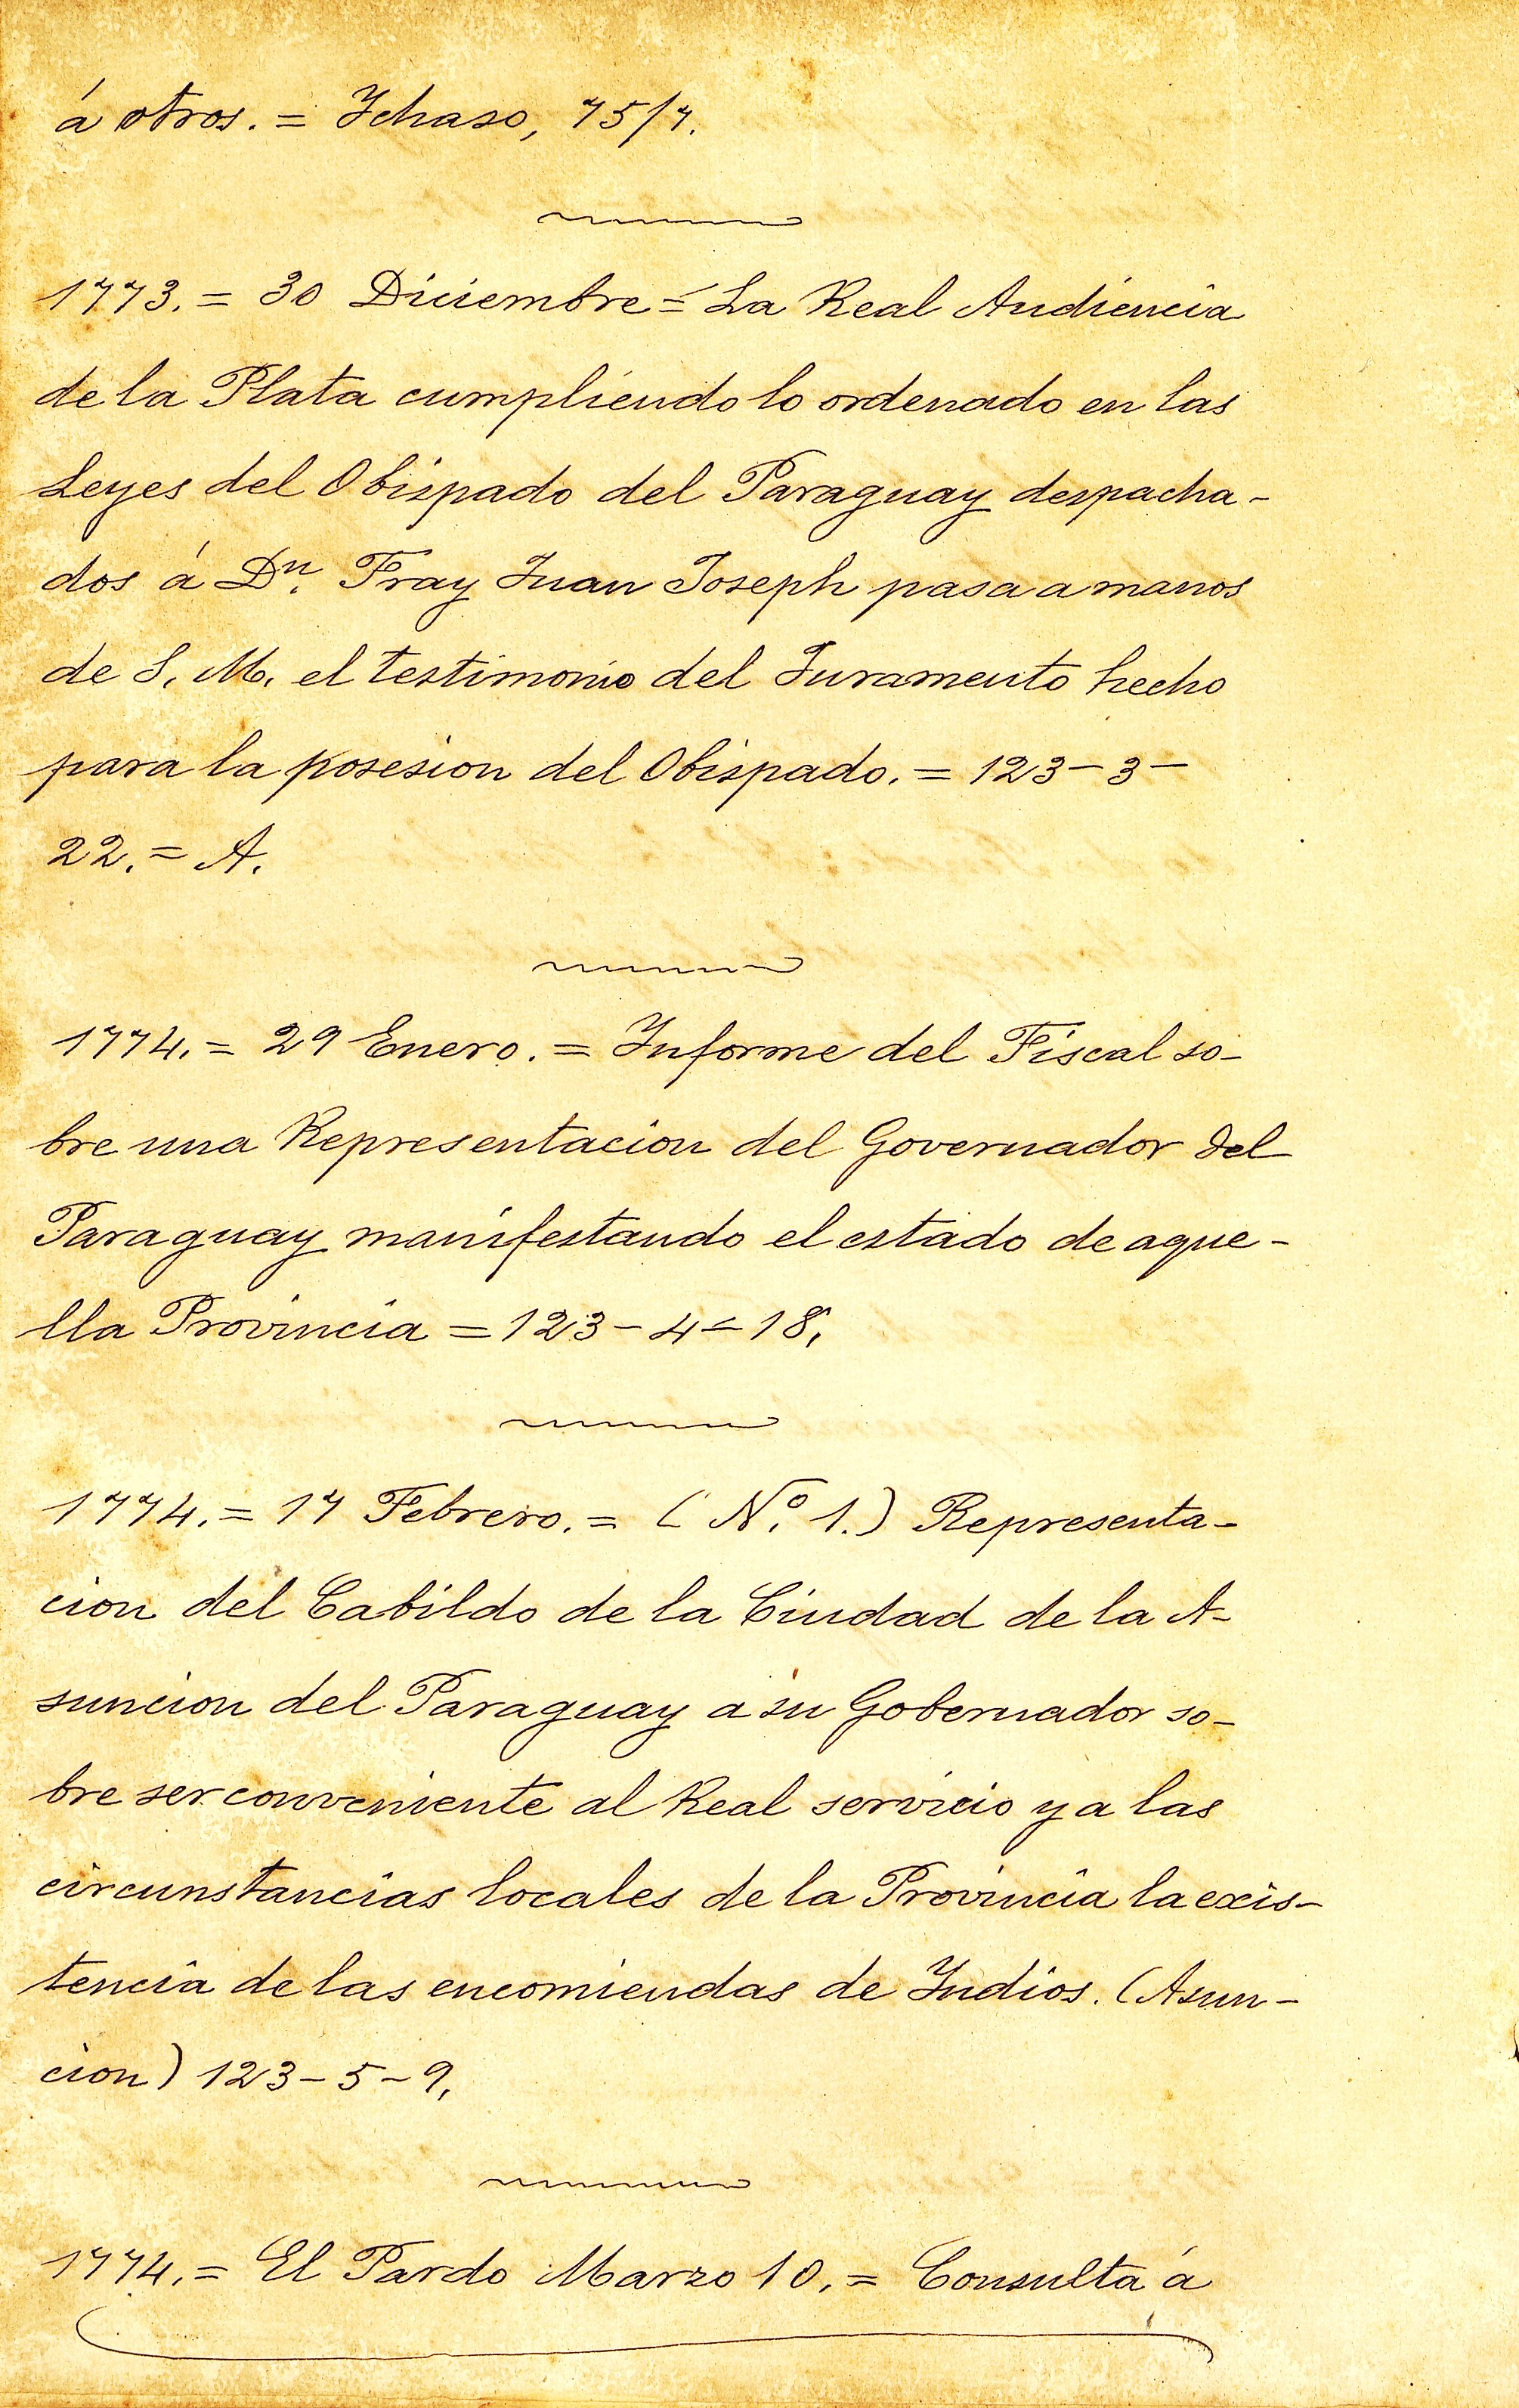 á otros. = Ichaso, 75/7.
1773. = 30 Diciembre = La Real Audiencia
de la Plata cumpliendo lo ordenado en las
Leyes del Obispado del Paraguay despacha-
dos á Dn. Fray Juan Joseph pasa a manos
de S. M. el testimonio del Juramento hecho
para la posesion del Obispado. = 123-3-
22. = A.
1774. = 29 Enero. = Informe del Fiscal so-
bre una Representacion del Governador del
Paraguay manifestando el estado de aque-
lla Provincia = 123-4-18.
1774. = 17 Febrero. = (Nº. 1.) Representa-
cion del Cabildo de la Ciudad de la A-
suncion del Paraguay a su Gobernador so-
bre ser conveniente al Real servicio y a las
circunstancias locales de la Provincia la exis-
tencia de las encomiendas de Indios. (Asun-
cion) 123-5-9.
1774. = El Pardo Marzo 10. = Consulta á